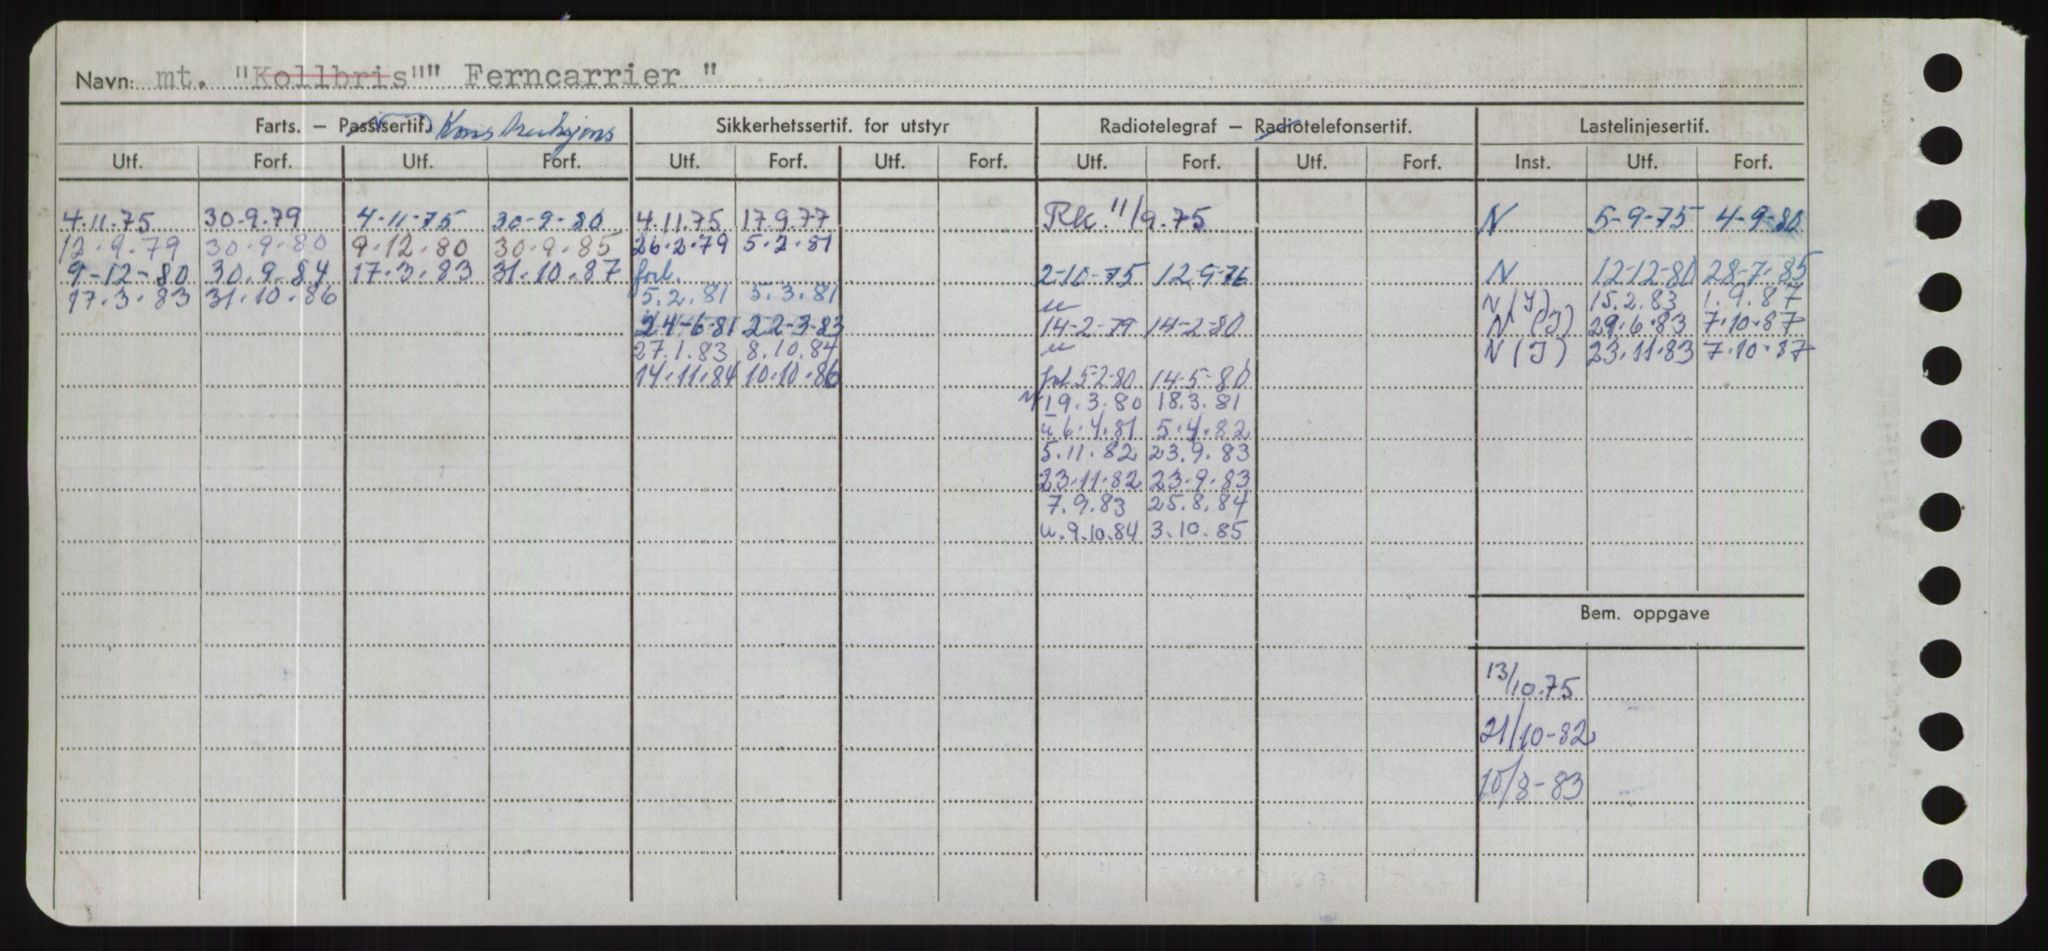 Navn: mt. "Kollbris"" Ferncarrier "
Farts. – Passasertif. Konstruksjons Sikkerhetssertif. for utstyr Radiotelegraf – Radiotelefonsertif. Lastelinjesertif.
Utf. Forf. Utf. Forf. Utf. Forf. Utf. Forf. Utf. Forf. Utf. Forf. Inst. Utf. Forf.
4.11.75 30-9.79 4-11-75 30-9-80 4.11.75 17.9.77 Rk. 11/9.75 N 5-9-75 4-9-80
12.9.79 30.9.80 9.12.80 30.9.85 26.2.79 5.2.81
9-12-80 30.9.84 17.3.83 31.10.87 forl. 2-10-75 12-9-76 N 12-12-80 28-7-85
17.3.83 31.10.86 5.2.81 5.3.81 u N(I) 15.2.83 1.9.87
24-6-81 22-3-83 14-2-79 14-2-80 N(I) 29.6.83 7.10.87
27.1.83 8.10.84 u N(I) 23.11.83 7.10.87
14.11.84 10.10.86 forl 5-2-80 14-5-80
19.3.80 18.3.81
u 6.4.81 5.4.82
5.11.82 23.9.83
23.11.82 23.9.83
7.9.83 25.8.84
u. 9.10.84 3.10.85
Bem. oppgave
13/10.75
21/10-82
10/8-83